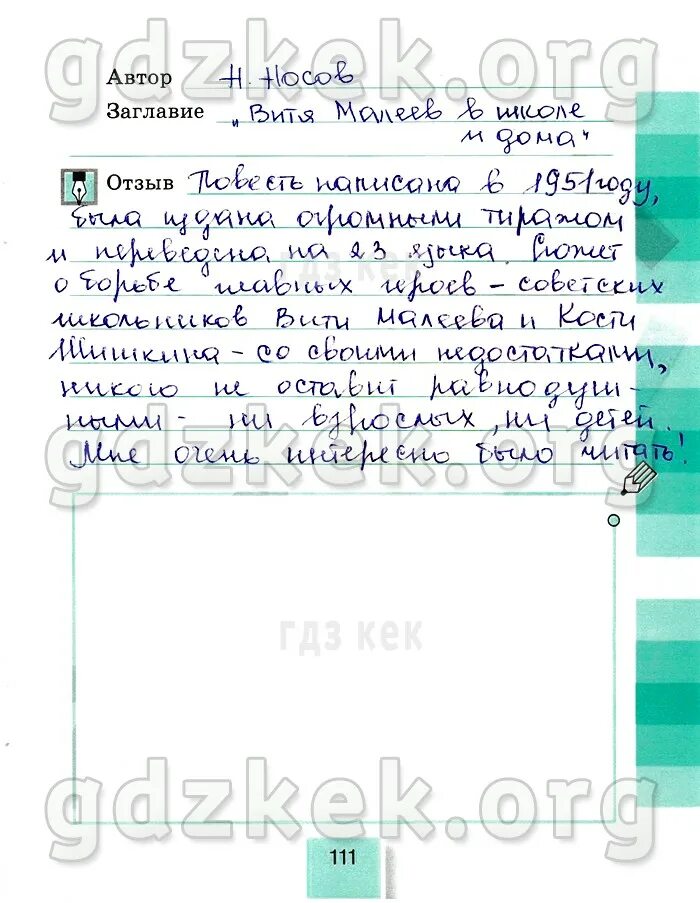 gdzkek.org
Автор Н. Носов
Заглавие „Витя Малеев в школе
и дома“
Отзыв Повесть написана в 1951 году,
была издана огромными тиражом
и переведена на 23 языка. Сюжет
гдз кек
о борьбе главных героев – советских
школьников Вити Малеева и Кости
Шишкина – со своими недостатками,
никого не оставит равнодуш-
ными – ни взрослых, ни детей.
Мне очень интересно было читать!
gdzkek.org
гдз кек
gdzkek.org
111